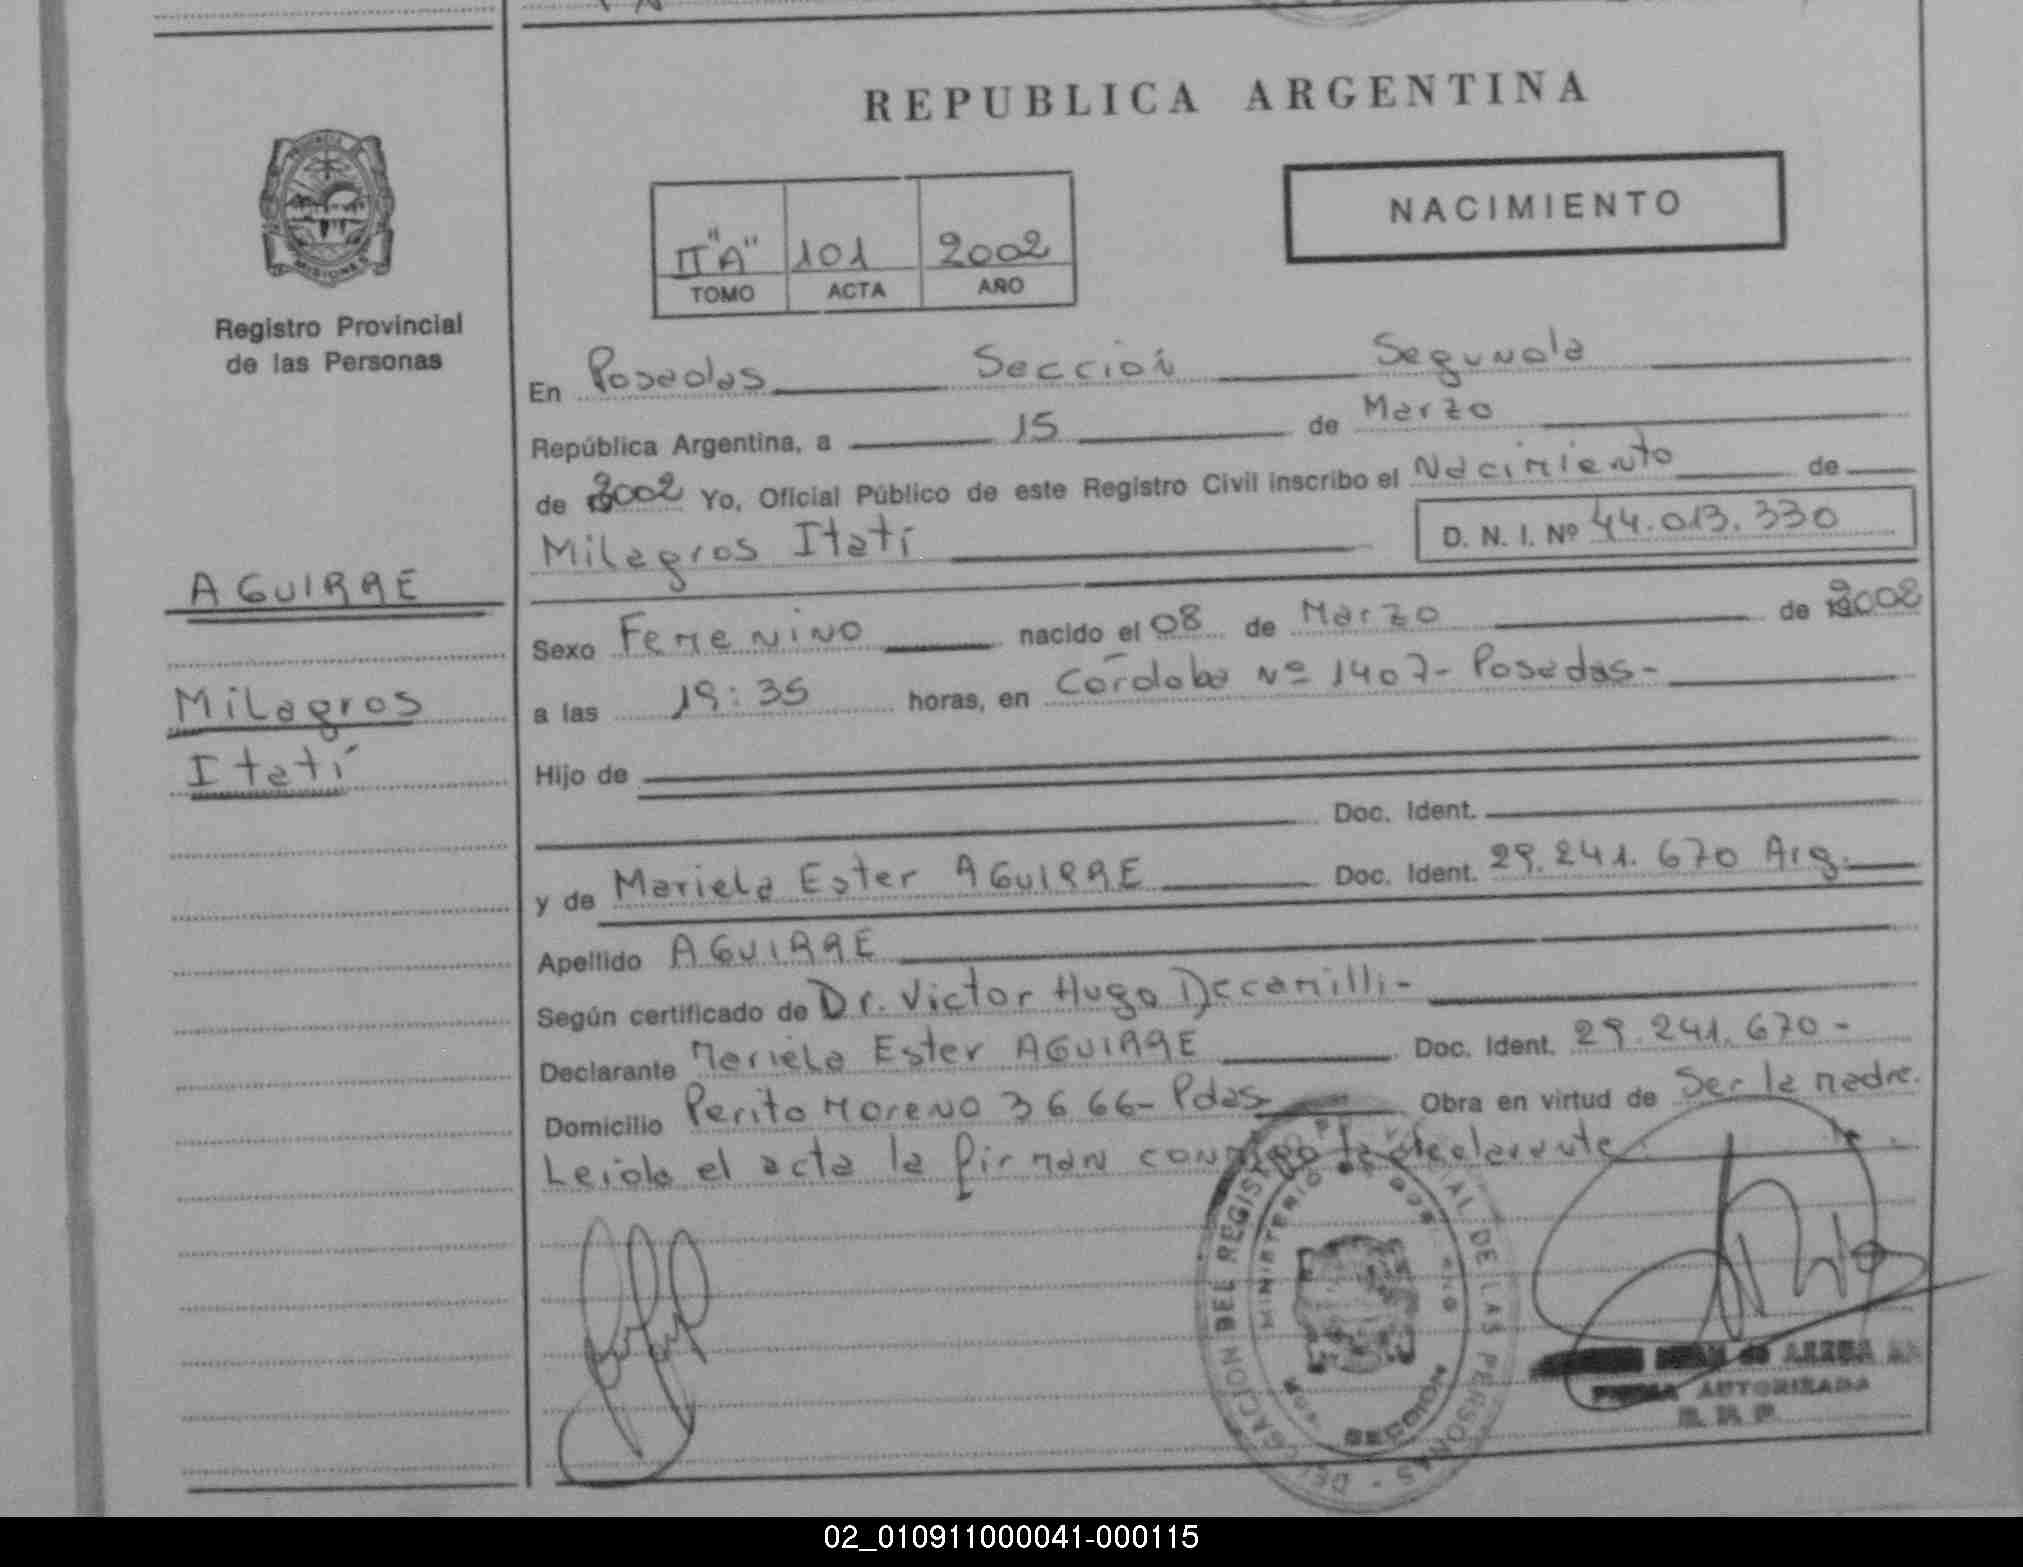 REPUBLICA ARGENTINA
NACIMIENTO
II "A" 101 2002
TOMO ACTA AÑO
MISIONES
Registro Provincial
de las Personas
AGUIRRE
Milagros
Itatí
En Posadas Sección Segunda
República Argentina, a 15 de Marzo
de 2002 Yo, Oficial Público de este Registro Civil inscribo el Nacimiento de
Milagros Itatí D. N. I. Nº 44.013.330
Sexo Femenino nacido el 08 de Marzo de 2002
a las 19:35 horas, en Córdoba Nº 1407- Posadas-
Hijo de
Doc. Ident.
y de Mariela Ester AGUIRRE Doc. Ident. 29.241.670 Arg.
Apellido AGUIRRE
Según certificado de Dr. Victor Hugo Decamilli-
Declarante Mariela Ester AGUIRRE Doc. Ident. 29.241.670-
Domicilio Perito Moreno 3666- Pdas Obra en virtud de Ser la madre.
Leida el acta la firman conmigo la declarante.
DELEGACION DEL REGISTRO PROVINCIAL DE LAS PERSONAS
MINISTERIO DE
SECCION
FIRMA AUTORIZADA
02_010911000041-000115